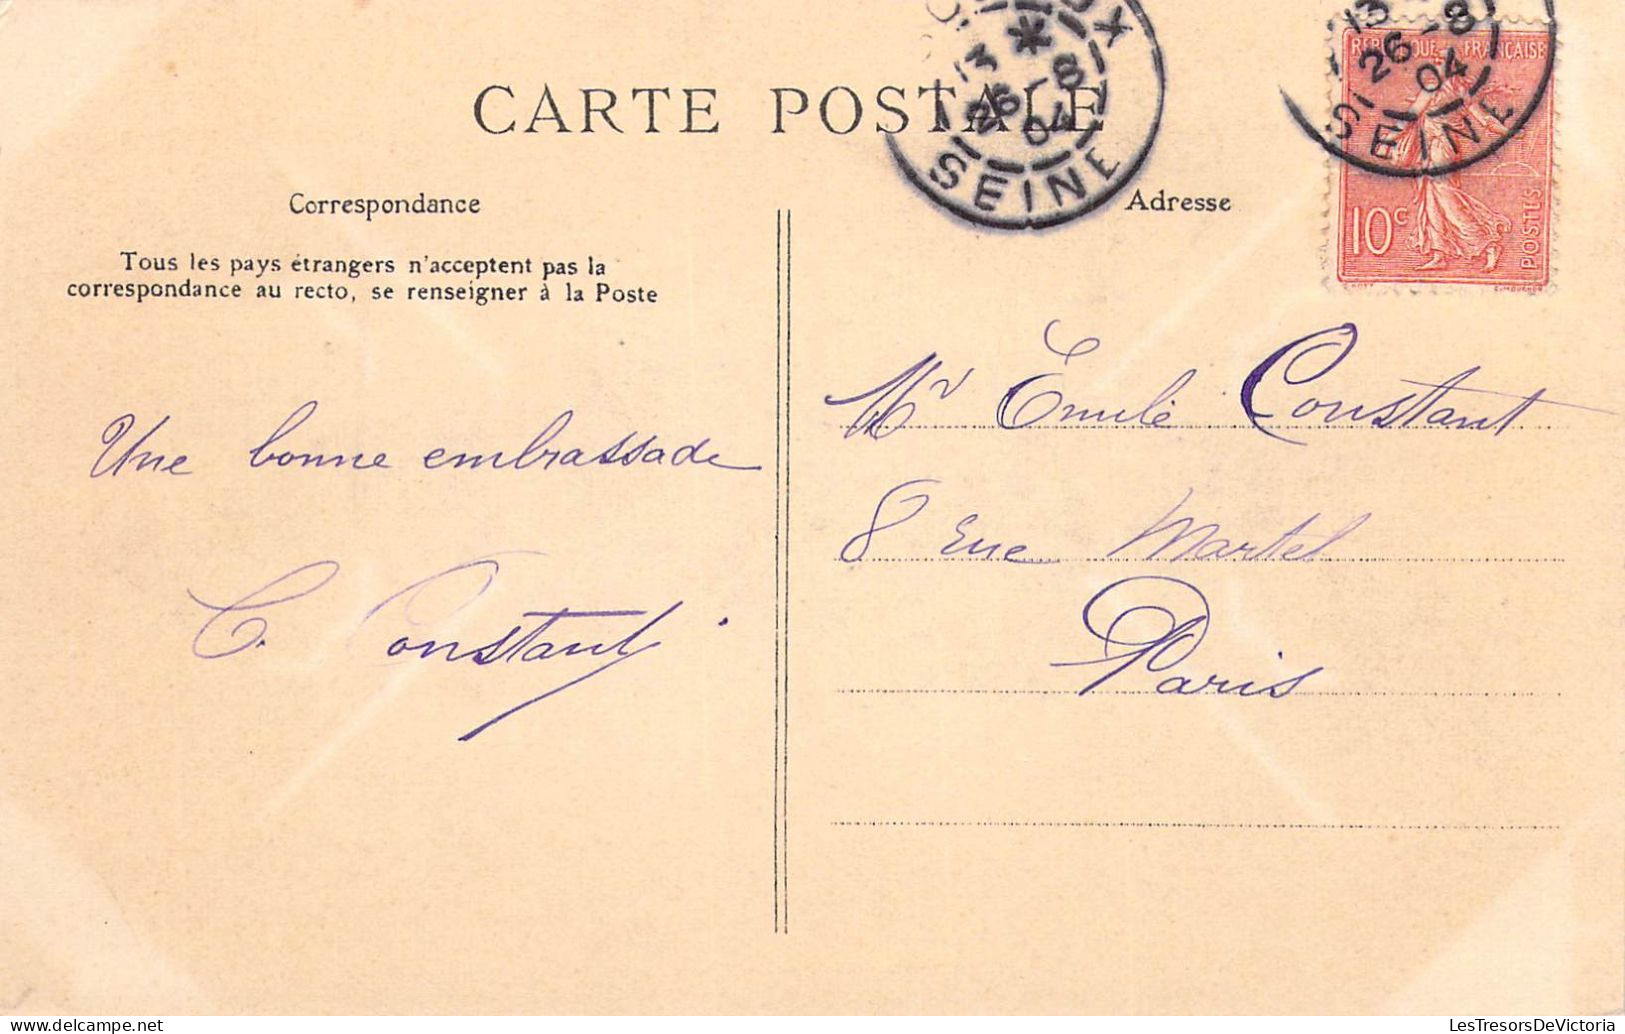 CARTE POSTALE
13
26 - 8
04
SEINE
13
26 - 8
04
SEINE
RÉPUBLIQUE FRANÇAISE
10c
POSTES
Correspondance
Tous les pays étrangers n'acceptent pas la
correspondance au recto, se renseigner à la Poste
Une bonne embrassade
C. Constant
Adresse
Mr Emile Constant
8 rue Martel
Paris
LesTresorsDeVictoria